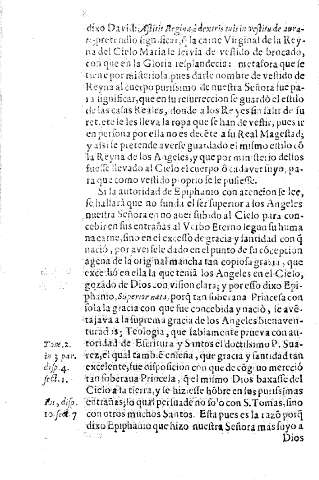 dixo Dauid: Astitit Regina à dextris tuis in vestitu deaura-
to, pretendio significar, q̃ la carne Virginal de la Rey-
na del Cielo Maria le seruia de vestido de brocado,
con que en la Gloria resplandecio: metafora que se
tiene por misteriosa pues darle nombre de vestido de
Reyna al cuerpo purissimo de nuestra Señora fue pa-
ra significar, que en su resurreccion se guardò el estilo
de las casas Reales, donde a los Reyes in salir de su
retrete les lleva la ropa que se han de vestir, pues ir
en persona por ella no es decẽte a su Real Magestad;
y assi se pretende averse guardado el mismo estilo cõ
la Reyna de los Angeles, y que por ministerio dellos
fuesse llevado al Cielo el cuerpo ò cadaver suyo, pa-
ra que como vestido proprio se le pusiesse.
Si la autoridad de Epiphanio con atencion se lee,
se hallarà que no funda el ser superior a los Angeles
nuestra Señora en no auer subido al Cielo para con-
cebir en sus entrañas al Verbo Eterno segun su huma
na carne, sino en el excesso de gracia y santidad con q̃
nació, por aversele dado en el punto de su cõcepcion
agena de la original mancha tan copiosa gracia, que
excedió en ella la que tenià los Angeles en el Cielo,
gozado de Dios con vision clara; y por esso dixo Epi-
phanio, Superior nata, porq̃ tan soberana Princesa con
sola la gracia con que fue concebida y nació, le avẽ-
tajava a la suprema gracia de los Angeles bienaven-
turados; Teologia, que sabiamente prueva con au-
toridad de Escritura y Santos el doctissimo P. Sua-
Tom. 2.
in 3. par.
disp. 4.
sect. 1.
rez, el qual tambiẽ enseña, que gracia y santidad tan
excelente, fue disposicion con que de cõgruo mereciò
tan soberana Princesa, q̃ el mismo Dios baxasse del
Cielo a la tierra, y se hiziesse hõbre en sus purissimas
disp.
10. sect. 7
entrañas; lo qual persuade no solo con S. Tomas, sino
con otros muchos Santos. Esta pues es la razõ porq̃
dixo Epiphanio que hizo nuestra Señora mas suyo a
Dios